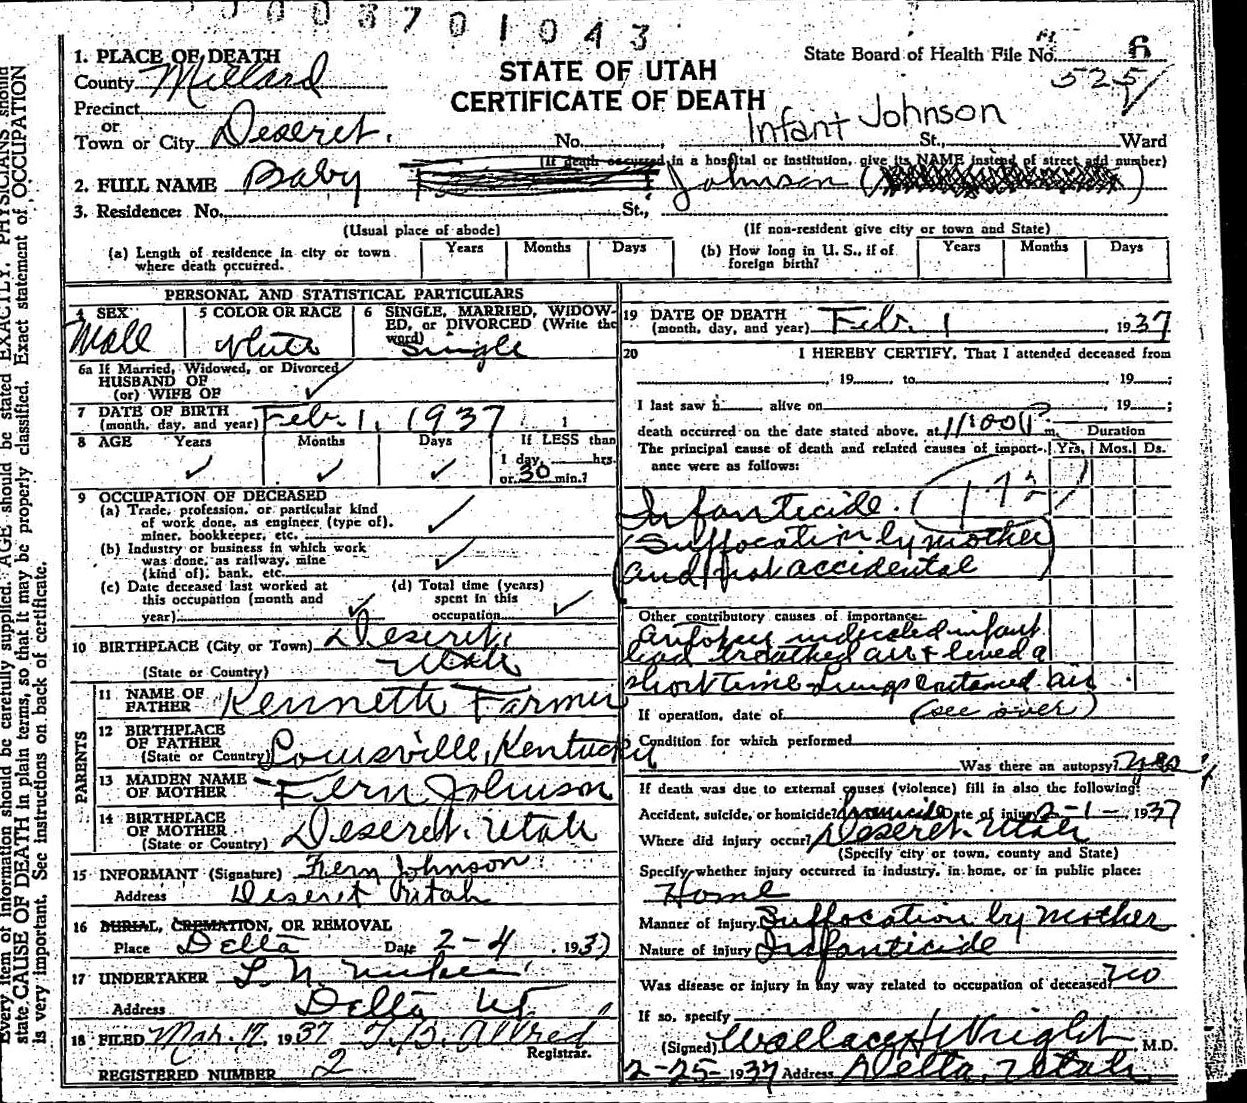 0003701043
1. PLACE OF DEATH
County Millard
Precinct
or
Town or City Deseret.
STATE OF UTAH
CERTIFICATE OF DEATH
State Board of Health File No. 6
525
Infant Johnson
No. St., Ward
(If death occurred in a hospital or institution, give its NAME instead of street and number)
2. FULL NAME Baby Johnson ( )
3. Residence: No. St.,
(Usual place of abode) (If non-resident give city or town and State)
(a) Length of residence in city or town where death occurred. Years Months Days
(b) How long in U. S., if of foreign birth? Years Months Days
PERSONAL AND STATISTICAL PARTICULARS
4 SEX Male
5 COLOR OR RACE White
6 SINGLE, MARRIED, WIDOWED, or DIVORCED (Write the word) Single
6a If Married, Widowed, or Divorced
HUSBAND OF
(or) WIFE OF ✓
7 DATE OF BIRTH
(month, day, and year) Feb. 1, 1937
8 AGE Years ✓ Months ✓ Days ✓ If LESS than
1 day, hrs.
or 30 min.?
9 OCCUPATION OF DECEASED
(a) Trade, profession, or particular kind
of work done, as engineer (type of),
miner, bookkeeper, etc. ✓
(b) Industry or business in which work
was done, as railway, mine
(kind of), bank, etc. ✓
(c) Date deceased last worked at
this occupation (month and
year) ✓
(d) Total time (years)
spent in this
occupation ✓
10 BIRTHPLACE (City or Town) Deseret,
(State or Country) Utah
PARENTS
11 NAME OF
FATHER Kenneth Farmer
12 BIRTHPLACE
OF FATHER
(State or Country) Louisville, Kentucky
13 MAIDEN NAME
OF MOTHER Fern Johnson
14 BIRTHPLACE
OF MOTHER
(State or Country) Deseret, Utah
15 INFORMANT (Signature) Fern Johnson
Address Deseret Utah
16 BURIAL, CREMATION, OR REMOVAL
Place Delta Date 2-4, 1937
17 UNDERTAKER
Address Delta Ut.
18 FILED Mar. 17, 1937 Allred
Registrar.
REGISTERED NUMBER 2
19 DATE OF DEATH
(month, day, and year) Feb. 1, 1937
20 I HEREBY CERTIFY, That I attended deceased from
, 19 , to , 19 ;
I last saw h alive on , 19 ;
death occurred on the date stated above, at 11:00 P m.
Duration
The principal cause of death and related causes of importance were as follows: Yrs. Mos. Ds.
Infanticide. (172)
(Suffocation by mother
and not accidental)
Other contributory causes of importance:
Autopsy indicated infant
had breathed air & lived a
short time Lungs contained air
(see over)
If operation, date of
Condition for which performed
Was there an autopsy? yes
If death was due to external causes (violence) fill in also the following:
Accident, suicide, or homicide? homicide Date of injury 2-1-, 1937
Where did injury occur? Deseret, Utah
(Specify city or town, county and State)
Specify whether injury occurred in industry, in home, or in public place:
Home
Manner of injury Suffocation by mother
Nature of injury Infanticide
Was disease or injury in any way related to occupation of deceased? no
If so, specify
(Signed) Wallace H Wright M.D.
2-25-1937 Address Delta, Utah
Every item of information should be carefully supplied. AGE should be stated EXACTLY. PHYSICIANS should
state CAUSE OF DEATH in plain terms, so that it may be properly classified. Exact statement of OCCUPATION
is very important. See instructions on back of certificate.